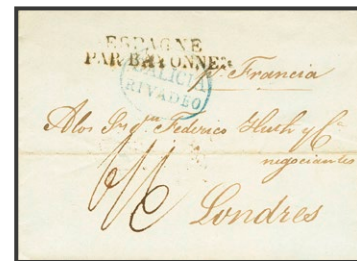 ESPAGNE
PAR BAYONNE
GALICIA
RIVADEO
pr. Francia
A los Srs. Dn. Federico Huth y Ca.
negociantes
Londres